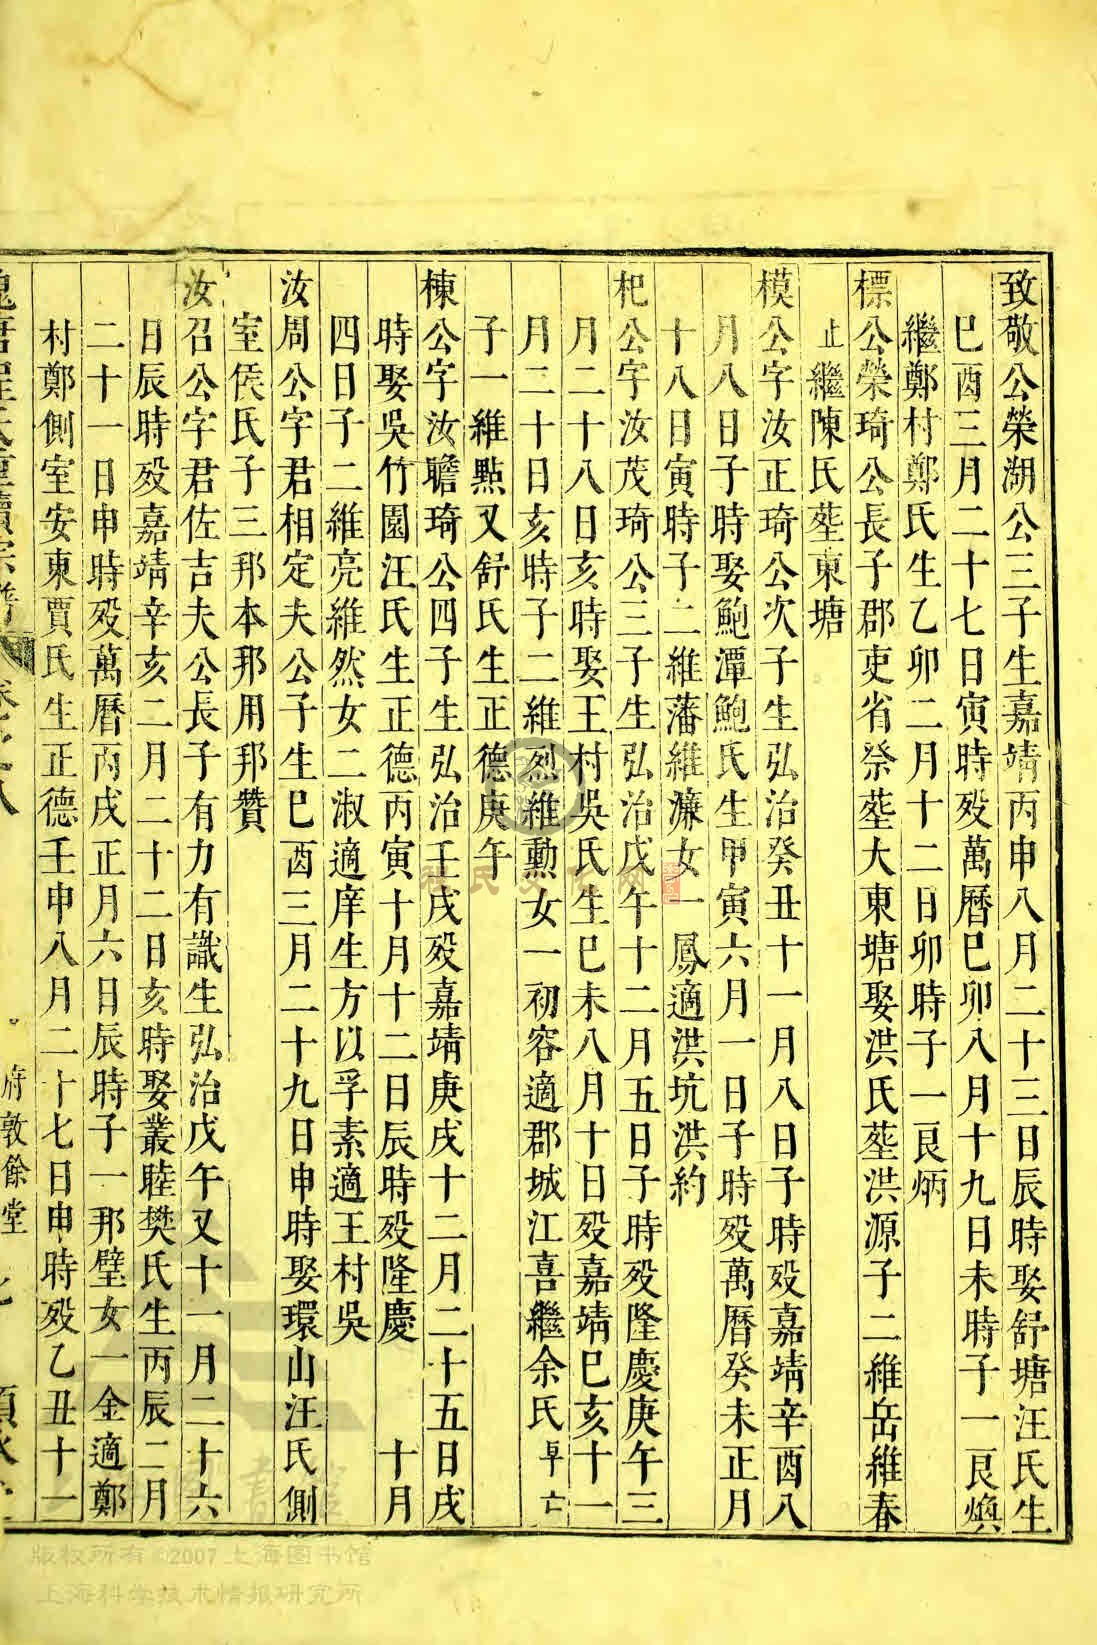 致敬公榮湖公三子生嘉靖丙申八月二十三日辰時娶舒塘汪氏生
巳酉三月二十七日寅時歿萬曆巳卯八月十九日未時子一良煥
繼鄭村鄭氏生乙卯二月十二日卯時子一良炳
標公榮琦公長子郡吏省祭塟大東塘娶洪氏塟洪源子二維岳維春
止繼陳氏塟東塘
模公字汝正琦公次子生弘治癸丑十一月八日子時歿嘉靖辛酉八
月八日子時娶鮑潭鮑氏生甲寅六月一日子時歿萬曆癸未正月
十八日寅時子二維藩維濂女一鳳適洪坑洪約
杞公字汝茂琦公三子生弘治戊午十二月五日子時歿隆慶庚午三
月二十八日亥時娶王村吳氏生巳未八月十日歿嘉靖巳亥十一
月二十日亥時子二維烈維勳女一初容適郡城江喜繼余氏卓亡
子一維點又舒氏生正德庚午
棟公字汝瞻琦公四子生弘治壬戌歿嘉靖庚戌十二月二十五日戌
時娶吳竹園汪氏生正德丙寅十月十二日辰時歿隆慶 十月
四日子二維亮維然女二淑適庠生方以孚素適王村吳
汝周公字君相定夫公子生巳酉三月二十九日申時娶環山汪氏側
室侯氏子三邦本邦用邦贊
汝召公字君佐吉夫公長子有力有識生弘治戊午又十一月二十六
日辰時歿嘉靖辛亥二月二十二日亥時娶叢睦樊氏生丙辰二月
二十一日申時歿萬曆丙戌正月六日辰時子一那璧女一金適鄭
村鄭側室安東賈氏生正德壬申八月二十七日申時歿乙丑十一
府敦餘堂
程氏文化网
版权所有 ©2007 上海图书馆
上海科学技术情报研究所